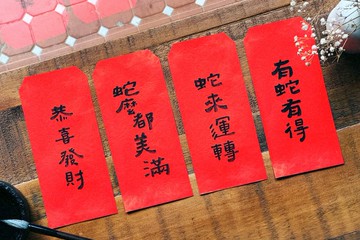 恭喜發財
蛇麼都美滿
蛇來運轉
有蛇有得